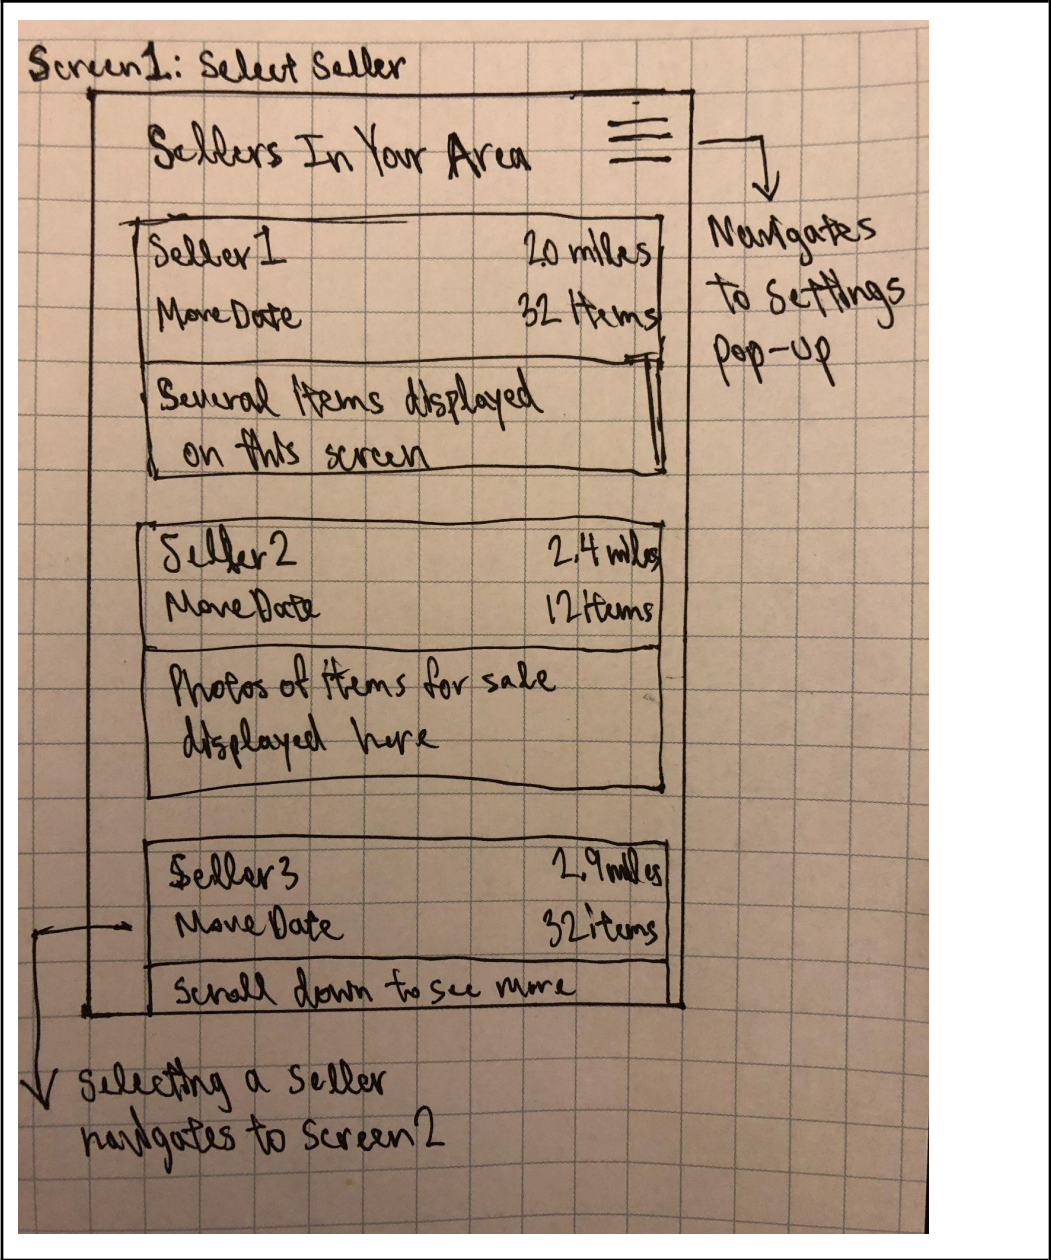 Screen1: Select Seller
Sellers In Your Area
Navigates
to Settings
pop-up
Seller1 2.0 miles
MoveDate 32 Items
Several items displayed
on this screen
Seller2 2.4 miles
MoveDate 12 items
Photos of items for sale
displayed here
Seller3 2.9 miles
MoveDate 32 items
Scroll down to see more
Selecting a seller
navigates to screen2